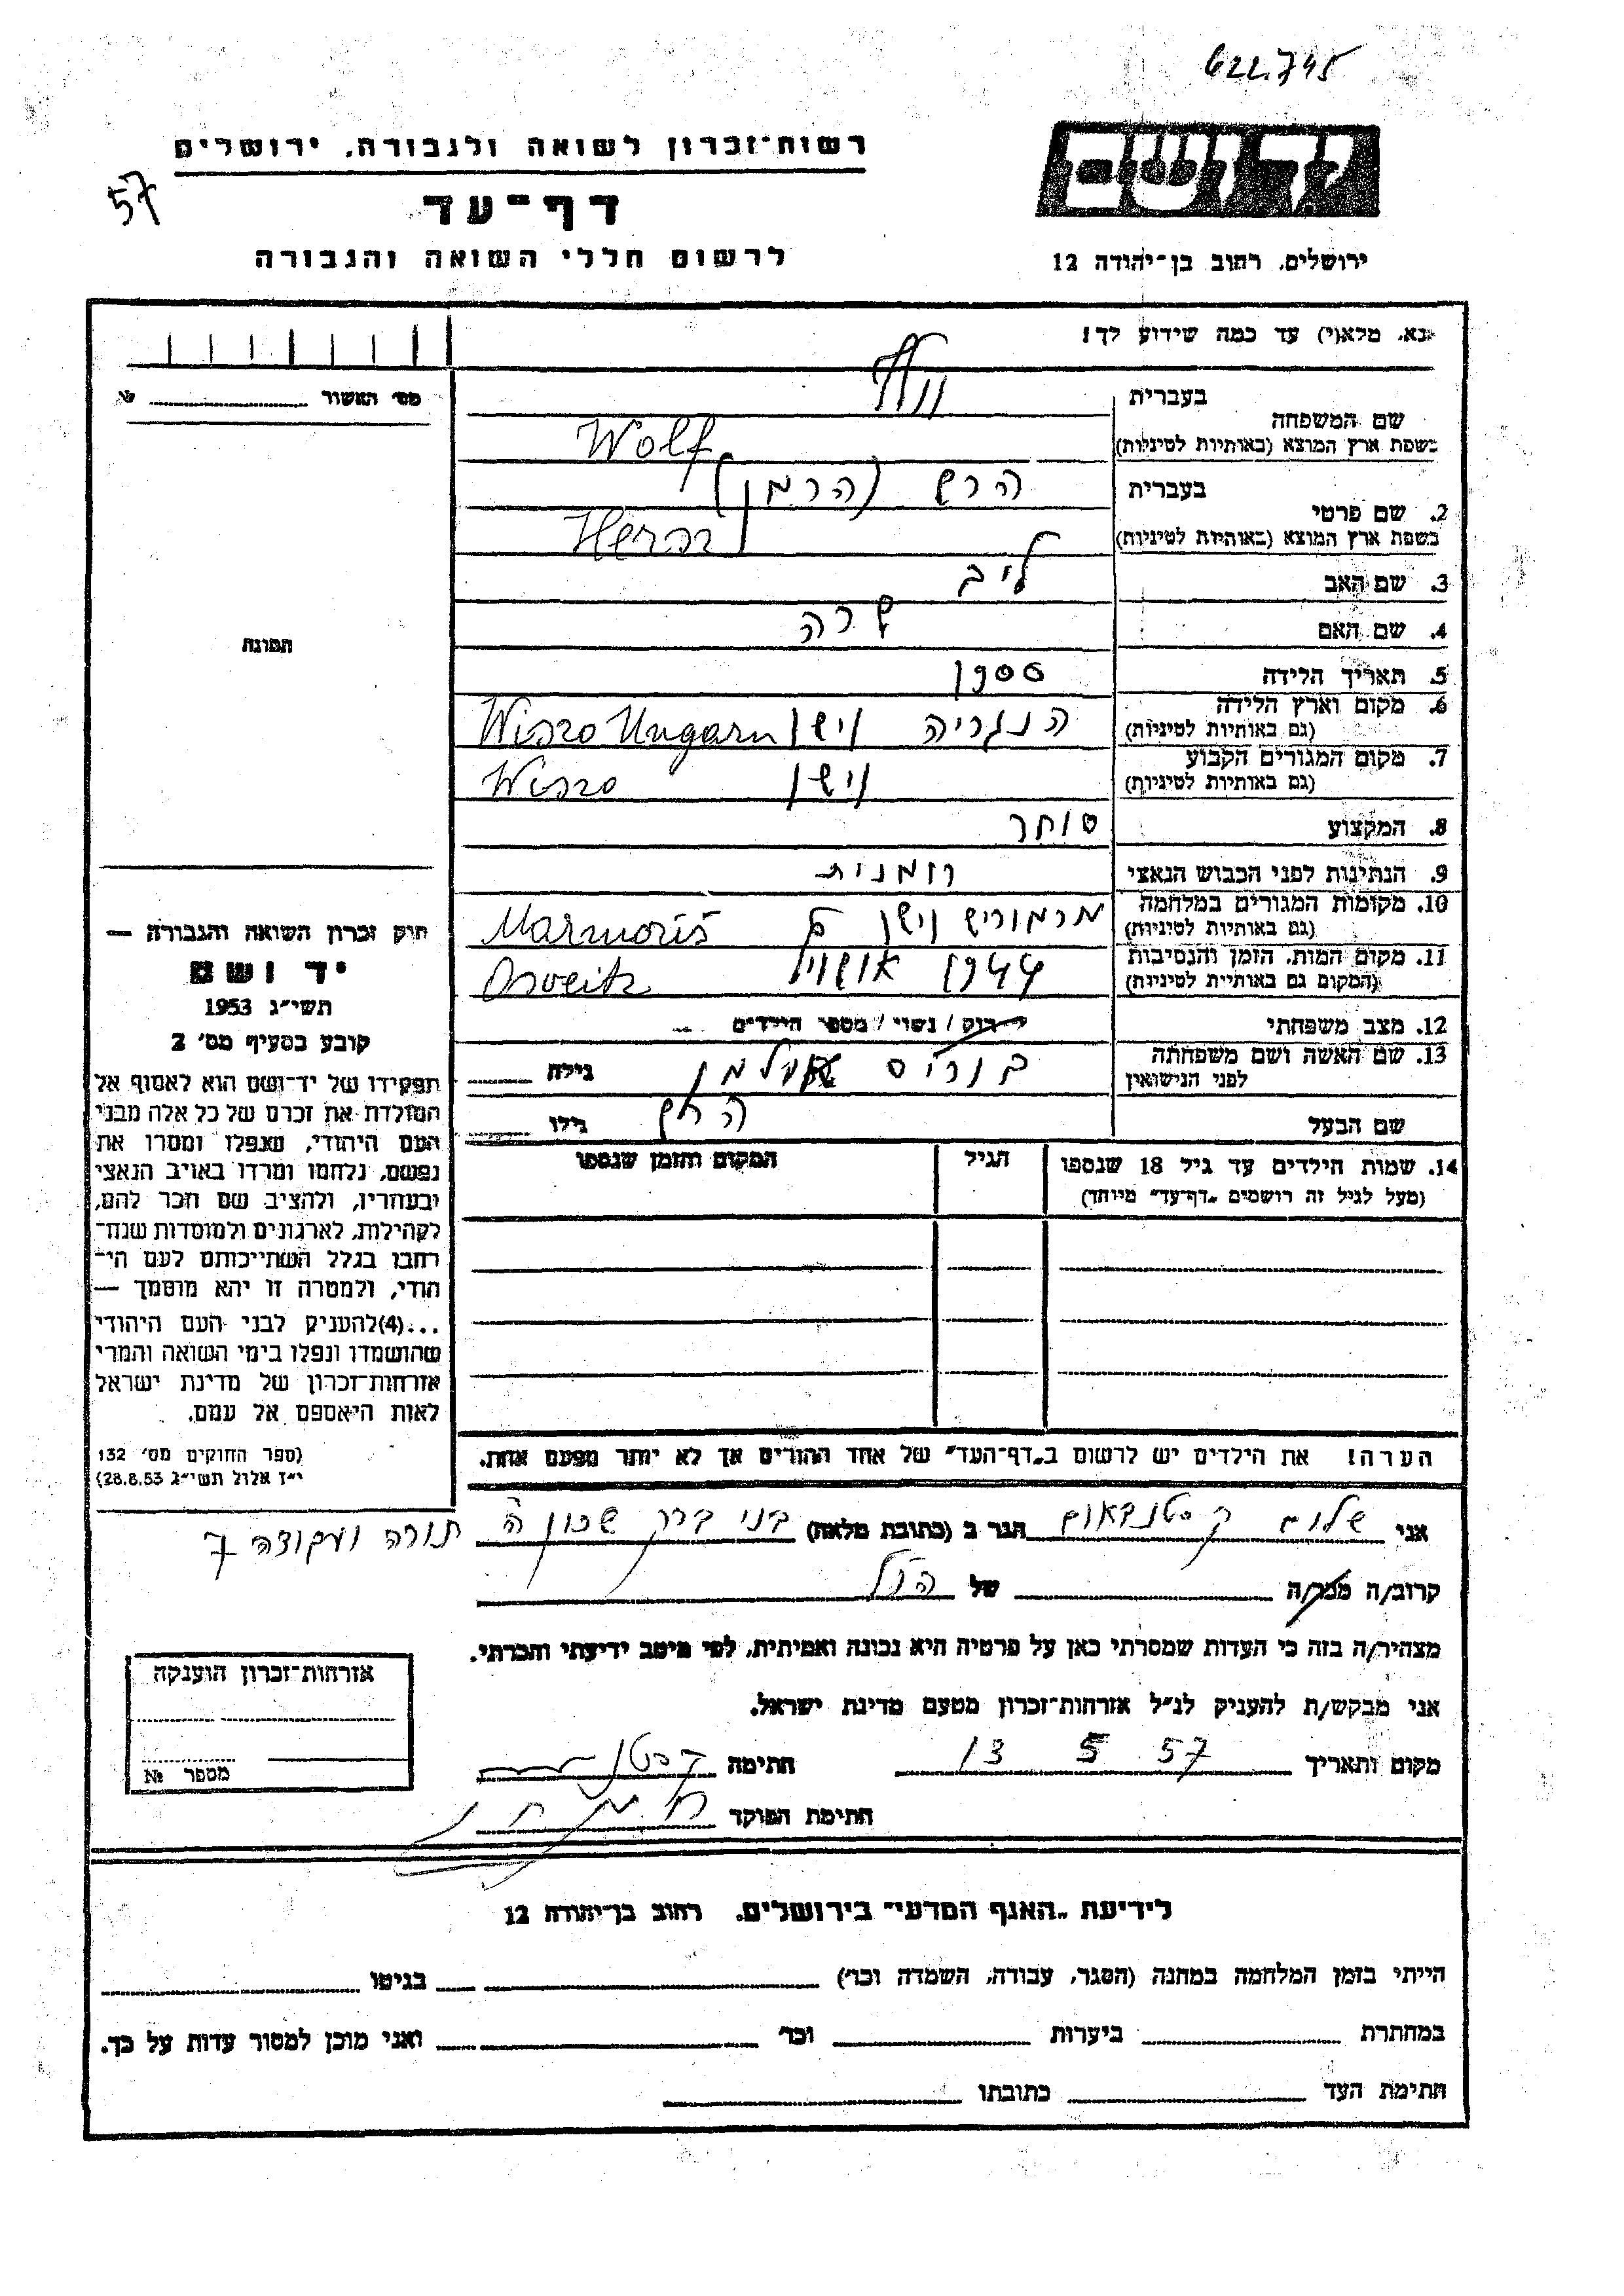 622.745
רשות־זכרון לשואה ולגבורה, ירושלים
57
דף־עד
לרשום חללי השואה והגבורה
יד ושם
ירושלים, רחוב בן־יהודה 12
נא, מלא(י) עד כמה שידוע לך!
מס׳ האשור № 
תמונה
חוק זכרון השואה והגבורה —
יד ושם
תשי״ג 1953
קובע בסעיף מס׳ 2
תפקידו של יד־ושם הוא לאסוף אל
המולדת את זכרם של כל אלה מבני
העם היהודי, שנפלו ומסרו את
נפשם, נלחמו ומרדו באויב הנאצי
ובעוזריו, ולהציב שם וזכר להם,
לקהילות, לארגונים ולמוסדות שנח־
רבו בגלל השתייכותם לעם הי־
הודי, ולמטרה זו יהא מוסמך —
...(4)להעניק לבני העם היהודי
שהושמדו ונפלו בימי השואה והמרי
אזרחות־זכרון של מדינת ישראל
לאות היאספם אל עמם.
(ספר החוקים מס׳ 132
י״ז אלול תשי״ג 28.8.53)
שם המשפחה
בעברית וולף
בשפת ארץ המוצא (באותיות לטיניות) Wolf
2. שם פרטי
בעברית הרש (הרמן)
בשפת ארץ המוצא (באותיות לטיניות) Herm
3. שם האב ליב
4. שם האם שרה
5. תאריך הלידה 1900
6. מקום וארץ הלידה
(גם באותיות לטיניות) הונגריה וישו Wiszo Ungarn
7. מקום המגורים הקבוע
(גם באותיות לטיניות) וישו Wiszo
8. המקצוע סוחר
9. הנתינות לפני הכבוש הנאצי רומנית
10. מקומות המגורים במלחמה
(גם באותיות לטיניות) מרמוריש וישו Marmoriš
11. מקום המות, הזמן והנסיבות
(המקום גם באותיות לטיניות) 1944 Osveitz
12. מצב משפחתי רווק / נשוי / מספר הילדים
13. שם האשה ושם משפחתה
לפני הנישואין גילה
שם הבעל גילו
14. שמות הילדים עד גיל 18 שנספו
(מעל לגיל זה רושמים „דף־עד״ מיוחד)
הגיל
המקום והזמן שנספו
הערה! את הילדים יש לרשום ב„דף־העד״ של אחד ההורים אך לא יותר מפעם אחת.
אני שלום קסטנבאום הגר ב (כתובת מלאה) בני ברק שכון ה תורה ועבודה 7
קרוב/ה מכר/ה של הנ״ל
מצהיר/ה בזה כי העדות שמסרתי כאן על פרטיה היא נכונה ואמיתית, לפי מיטב ידיעתי והכרתי.
אני מבקש/ת להעניק לנ״ל אזרחות־זכרון מטעם מדינת ישראל.
מקום ותאריך 13 5 57 חתימה
חתימת הפוקד
אזרחות־זכרון הוענקה
מספר №
לידיעת „האגף המדעי״ בירושלים, רחוב בן־יהודה 12
הייתי בזמן המלחמה במחנה (הסגר, עבודה, השמדה וכו׳) בגיטו
במחתרת ביערות וכו׳ ואני מוכן למסור עדות על כך.
חתימת העד כתובתו